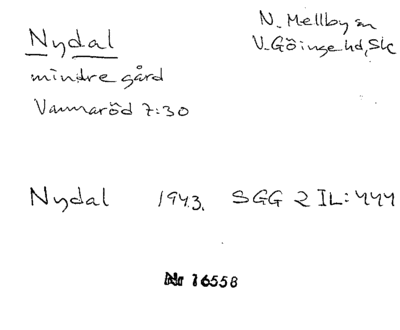 Nydal
mindre gård
Vannaröd 7:30
N. Mellby sn
V. Göinge hd, Sk
Nydal 1943. SGG 2 IL: 444
Nr 16558